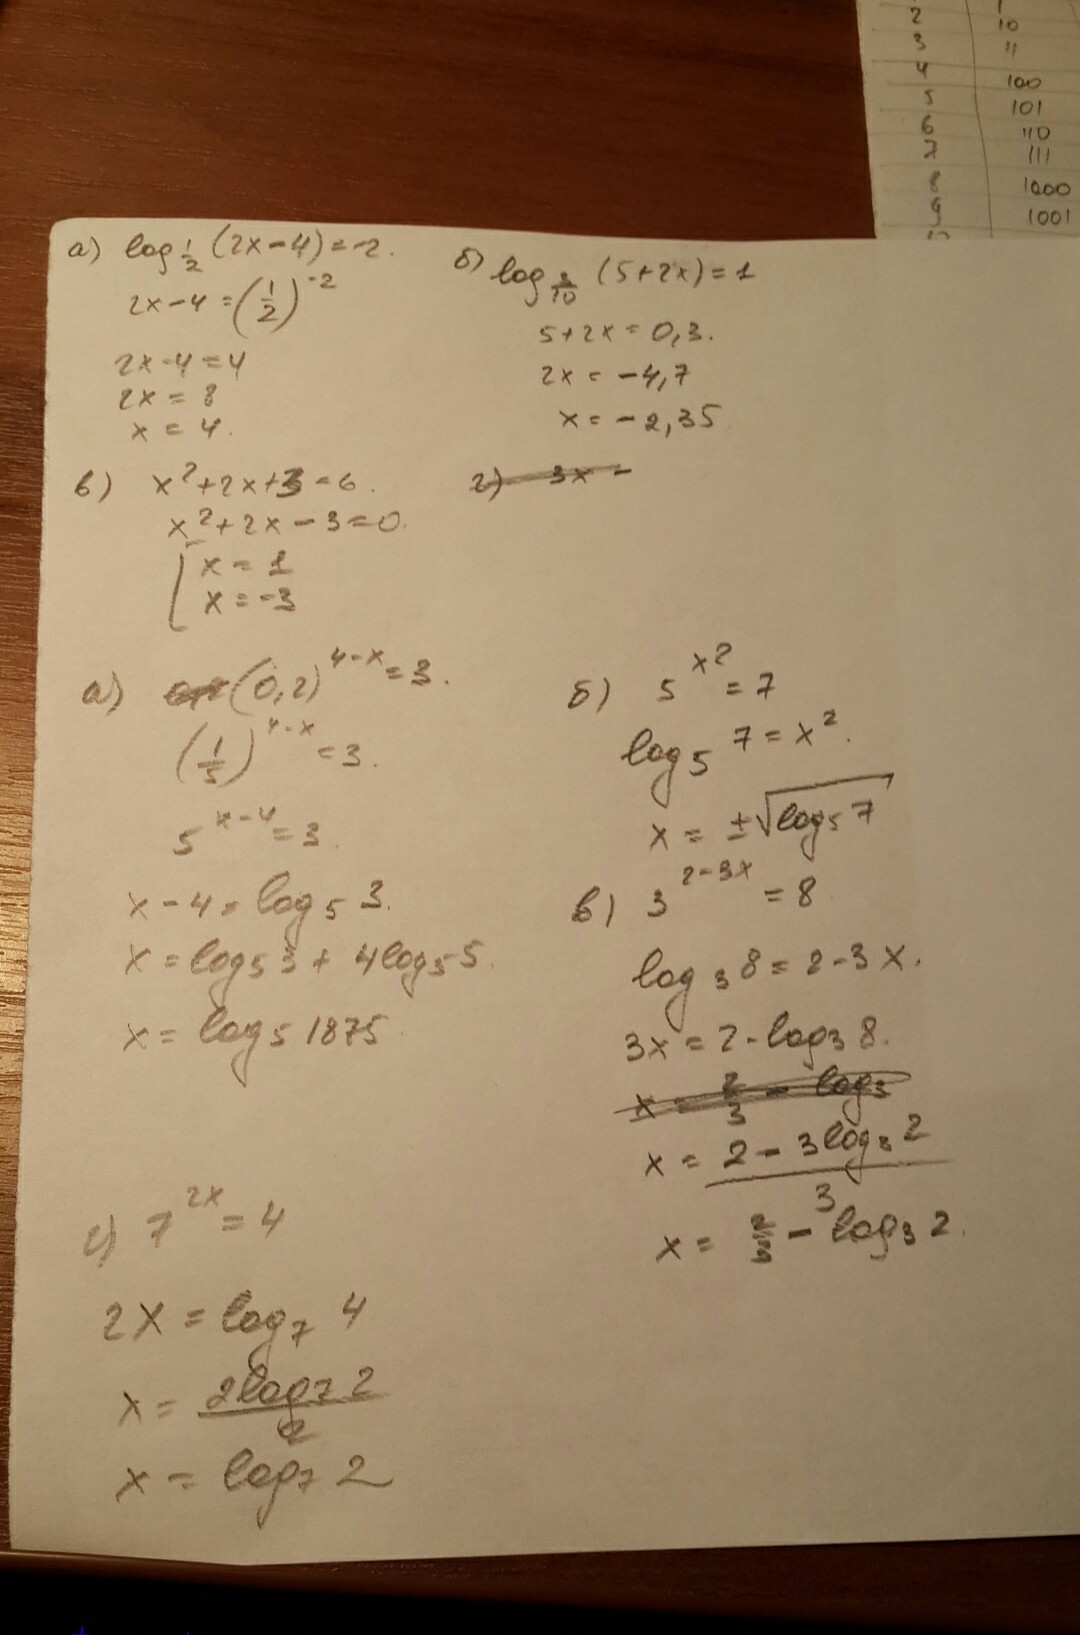 2 10
3 11
4 100
5 101
6 110
7 111
8 1000
9 1001
а) log_{1/2} (2x-4)=-2.
2x-4=(1/2)^{-2}
2x-4=4
2x=8
x=4.
б) log_{3/10} (5+2x)=1
5+2x=0,3.
2x=-4,7
x=-2,35
в) x²+2x+3=6.
x²+2x-3=0.
[x=1
x=-3
г) 3x-
а) (0,2)^{4-x}=3.
(1/5)^{4-x}=3.
5^{x-4}=3.
x-4=log₅3.
x=log₅3+4log₅5.
x=log₅1875
б) 5^{x²}=7
log₅7=x².
x=±√log₅7
в) 3^{2-3x}=8
log₃8=2-3x.
3x=2-log₃8.
x=2/3-log₃
x=(2-3log₃2)/3
x=2/3-log₃2.
г) 7^{2x}=4
2x=log₇4
x=2log₇2/2
x=log₇2